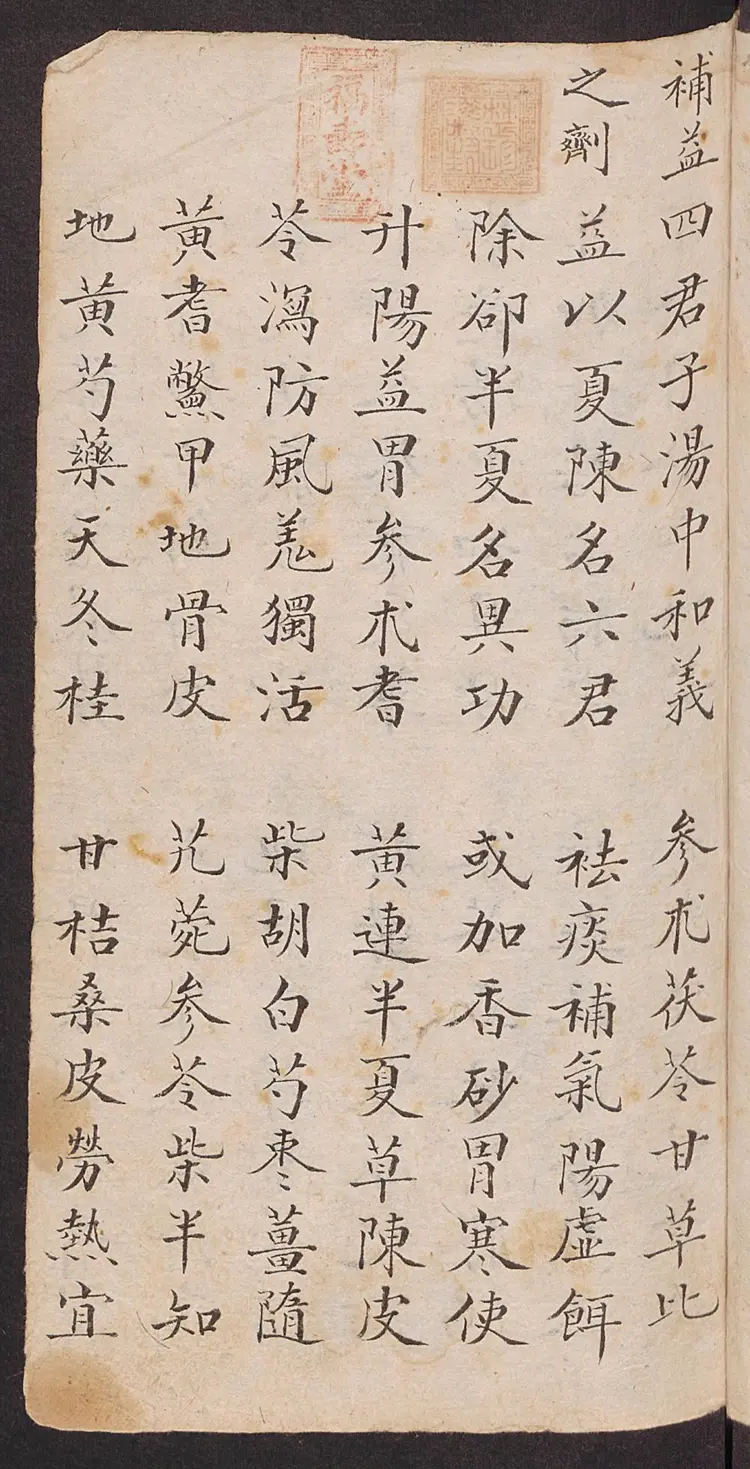 補益四君子湯中和義 参朮茯苓甘草比
之劑益以夏陳名六君 祛痰補氣陽虛餌
除卻半夏名異功 或加香砂胃寒使
升陽益胃参朮耆 黃連半夏草陳皮
苓瀉防風羗獨活 柴胡白芍棗薑隨
黃耆鱉甲地骨皮 艽菀参苓柴半知
地黃芍藥天冬桂 甘桔桑皮勞熱宜